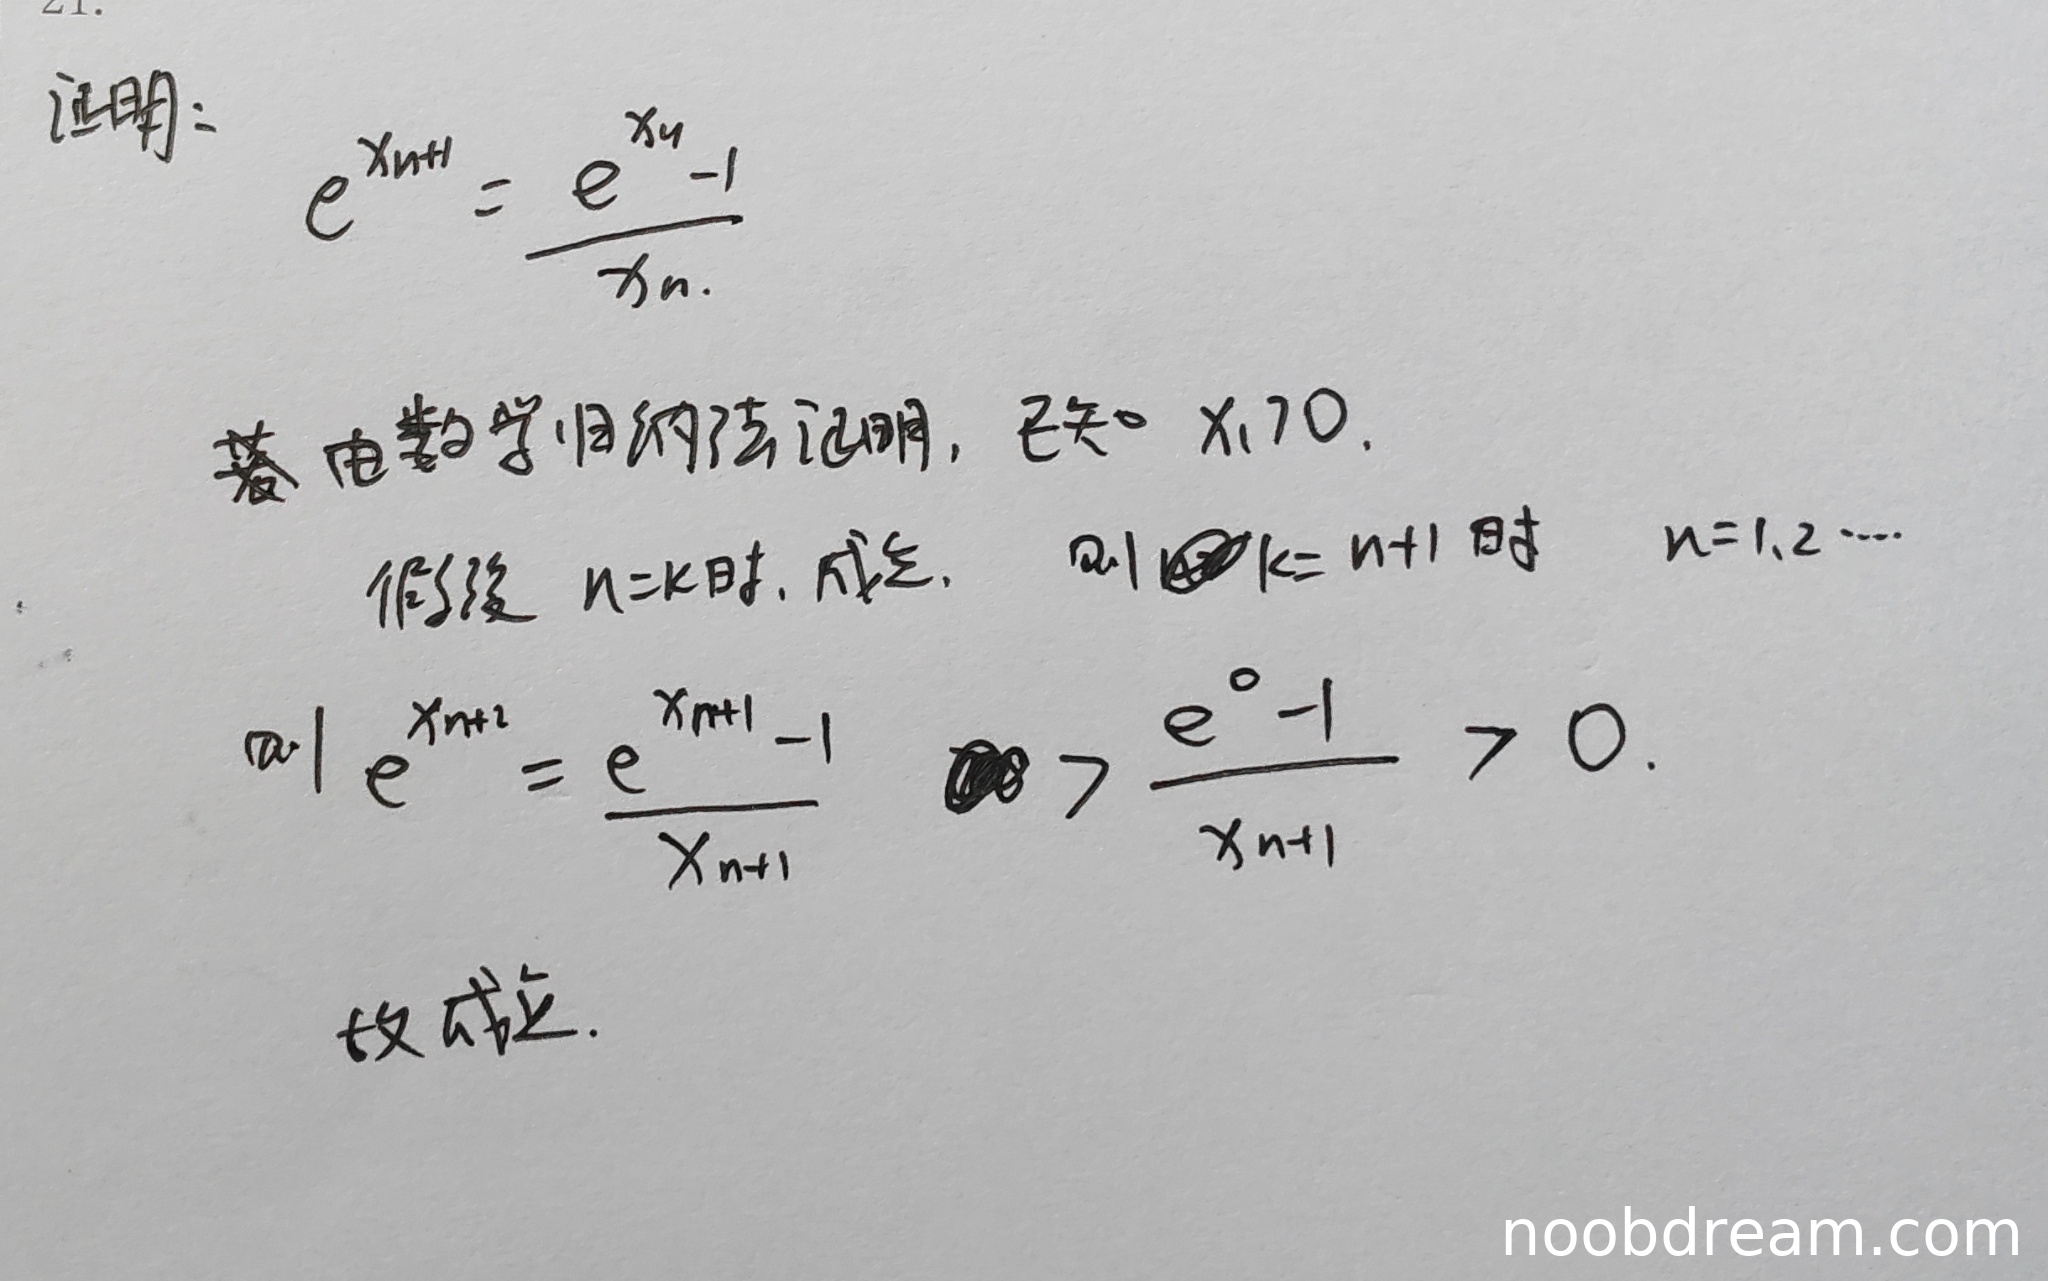 21.
证明:
e^{x_{n+1}} = \frac{e^{x_n} - 1}{x_n}.
由数学归纳法证明, 已知 x_1 > 0.
假设 n=k时, 成立. 则 k= n+1 时 n=1,2 ....
则 e^{x_{n+2}} = \frac{e^{x_{n+1}} - 1}{x_{n+1}} > \frac{e^0 - 1}{x_{n+1}} > 0.
故成立.
noobdream.com